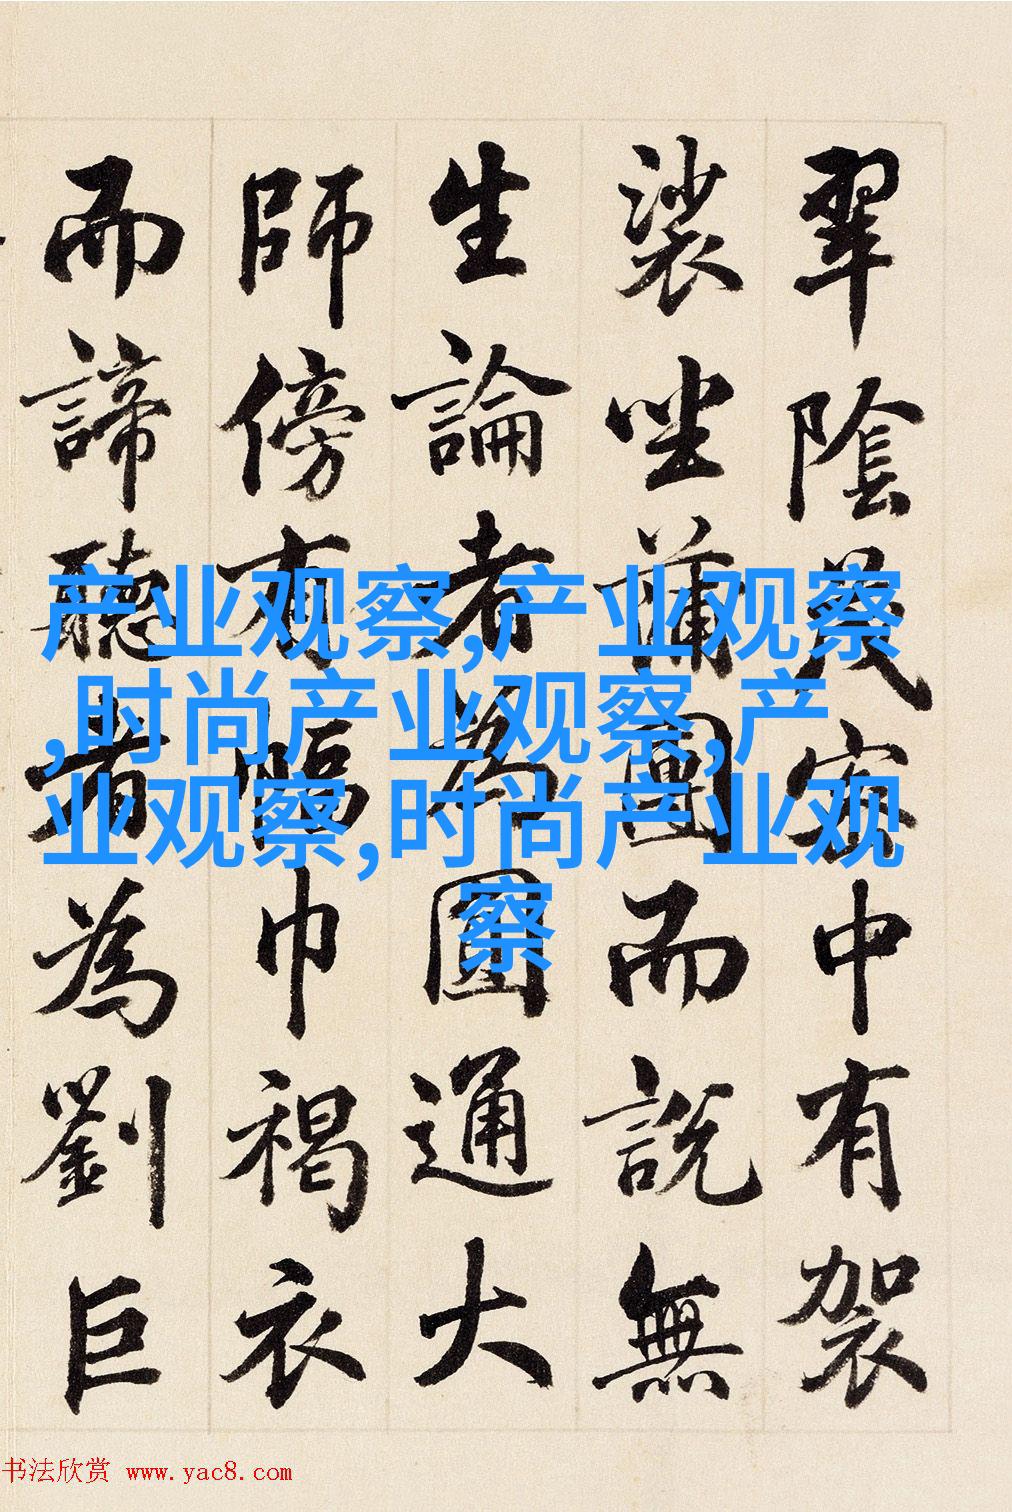 翠陰茂密中有袈
裟坐蒲團而說無
生論者為圓通大
師傍有幅巾褐衣
而諦聽者為劉巨
产业观察,产业观察
,时尚产业观察,产
业观察,时尚产业观
察
书法欣赏 www.yac8.com